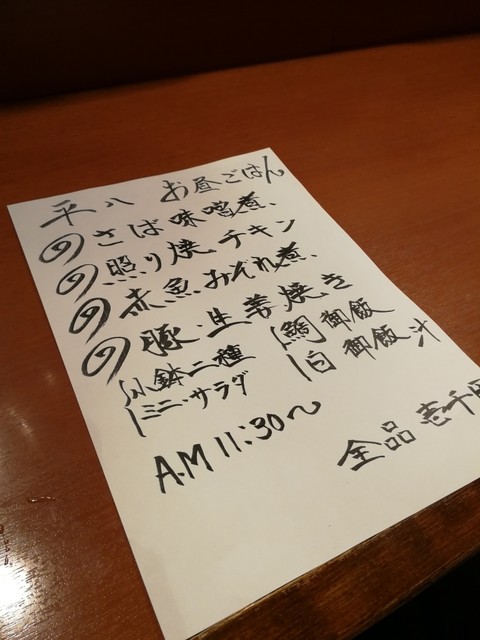 平八 お昼ごはん
さば味噌煮、
照り焼チキン
赤魚おぞれ煮、
豚、生姜焼き
小鉢二種
ミニ・サラダ
鯛御飯
白御飯 汁
A.M 11:30〜
全品壱千円